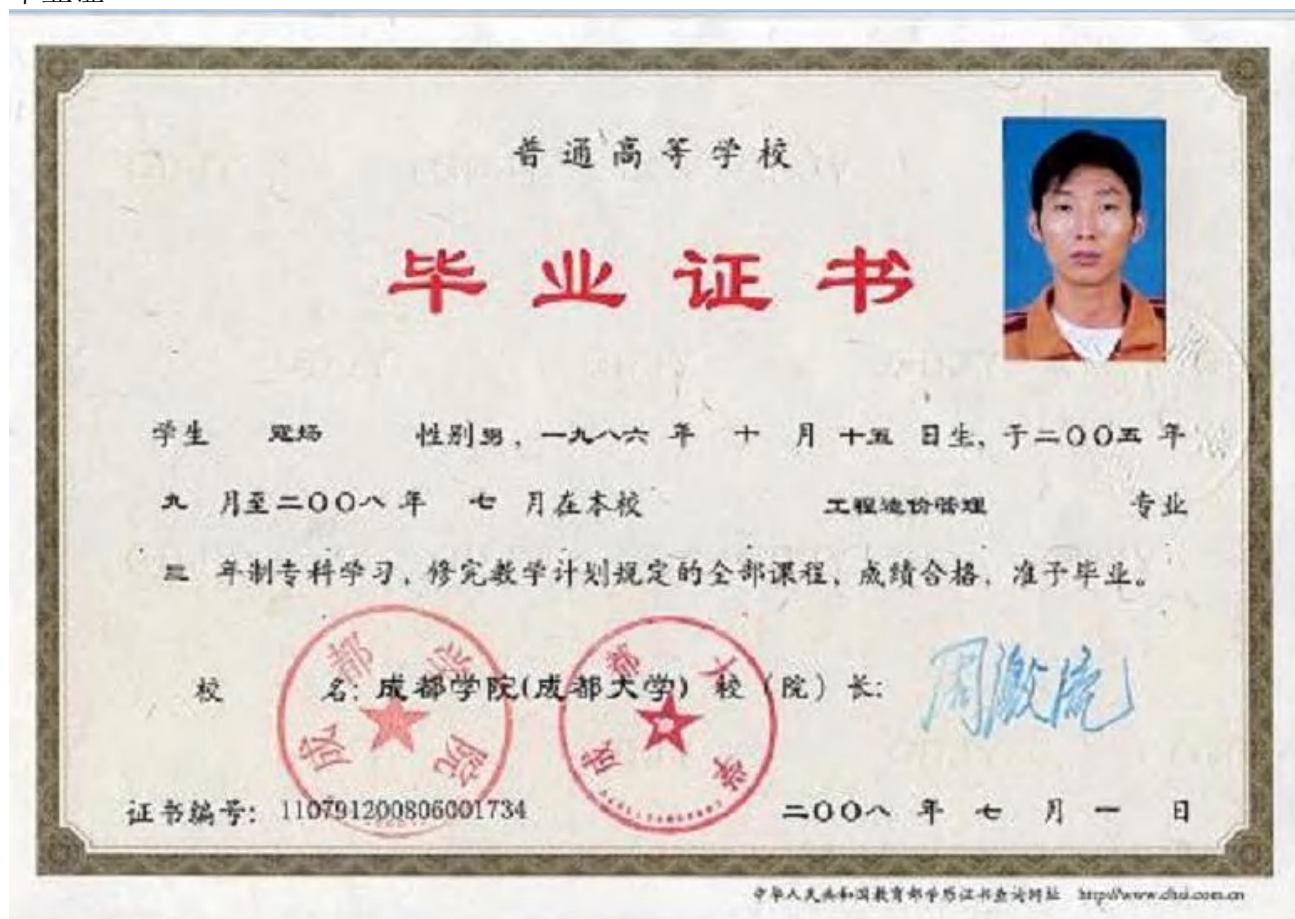 毕业证
普通高等学校
毕业证书
学生 性别男，一九八六年 十 月十五 日生，于二〇〇五年
九 月至二〇〇八年 七 月在本校 工程造价管理 专业
三 年制专科学习，修完教学计划规定的全部课程，成绩合格，准予毕业。
成都学院
成都大学
校 名：成都学院(成都大学) 校（院）长：
周激流
证书编号：110791200806001734 二〇〇八 年 七 月 一 日
中华人民共和国教育部学历证书查询网址